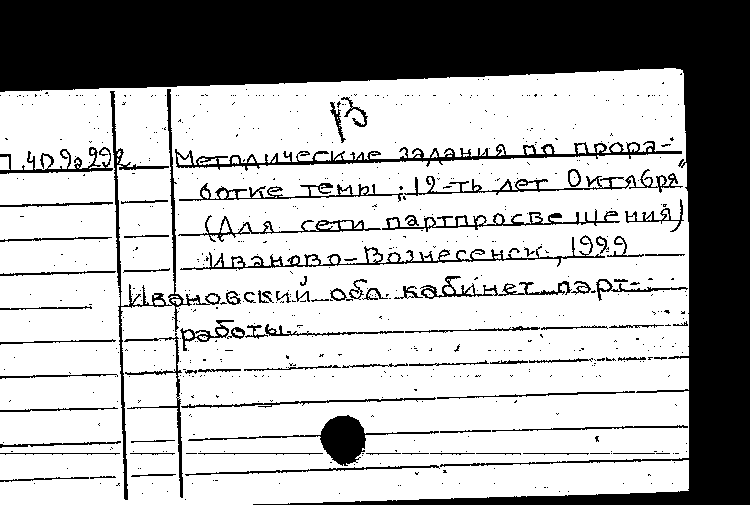 В
П.40.9а 292. Методические задания по прора-
ботке темы „12-ть лет Октября"
(Для сети партпросвещения)
Иваново-Вознесенск, 1929
Ивановский обл. кабинет парт-
работы.